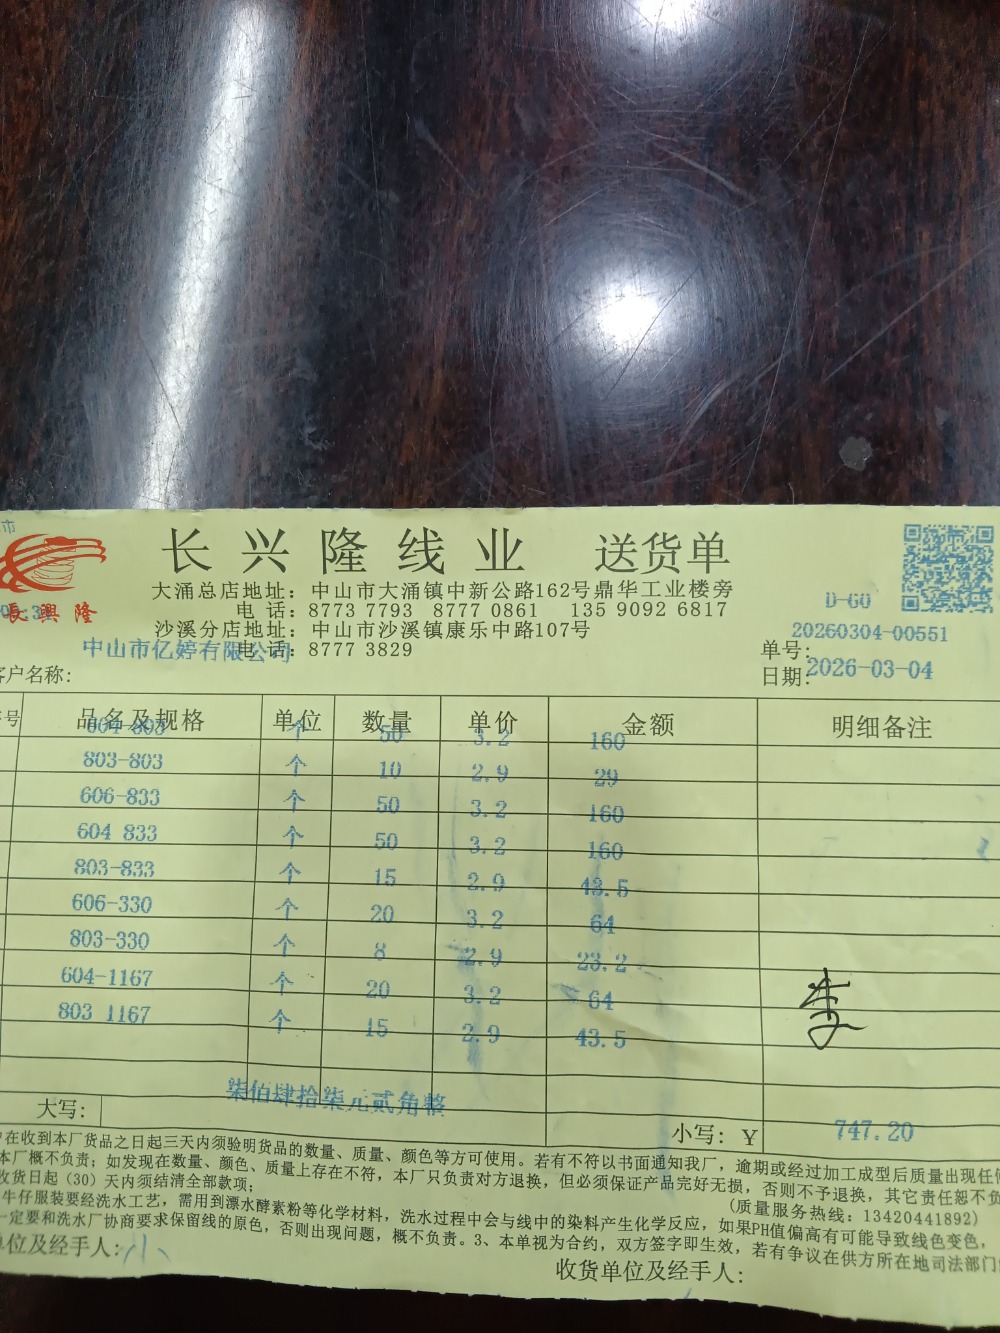 市
长兴隆线业 送货单
長興隆
大涌总店地址：中山市大涌镇中新公路162号鼎华工业楼旁
电 话：8773 7793 8777 0861 135 9092 6817
D-60
沙溪分店地址：中山市沙溪镇康乐中路107号
电 话：8777 3829
中山市亿婷有限公司
客户名称：
单号：20260304-00551
日期：2026-03-04
号 品名及规格 单位 数量 单价 金额 明细备注
604-803 个 50 3.2 160
803-803 个 10 2.9 29
606-833 个 50 3.2 160
604 833 个 50 3.2 160
803-833 个 15 2.9 43.5
606-330 个 20 3.2 64
803-330 个 8 2.9 23.2
604-1167 个 20 3.2 64
803 1167 个 15 2.9 43.5
李
柒佰肆拾柒元贰角整
大写：
小写：￥ 747.20
在收到本厂货品之日起三天内须验明货品的数量、质量、颜色等方可使用。若有不符以书面通知我厂，逾期或经过加工成型后质量出现任何
本厂概不负责；如发现在数量、颜色、质量上存在不符，本厂只负责对方退换，但必须保证产品完好无损，否则不予退换，其它责任恕不负
收货日起（30）天内须结清全部款项；
（质量服务热线：13420441892）
牛仔服装要经洗水工艺，需用到漂水酵素粉等化学材料，洗水过程中会与线中的染料产生化学反应，如果PH值偏高有可能导致线色变色，
一定要和洗水厂协商要求保留线的原色，否则出现问题，概不负责。3、本单视为合约，双方签字即生效，若有争议在供方所在地司法部门
单位及经手人：小
收货单位及经手人：